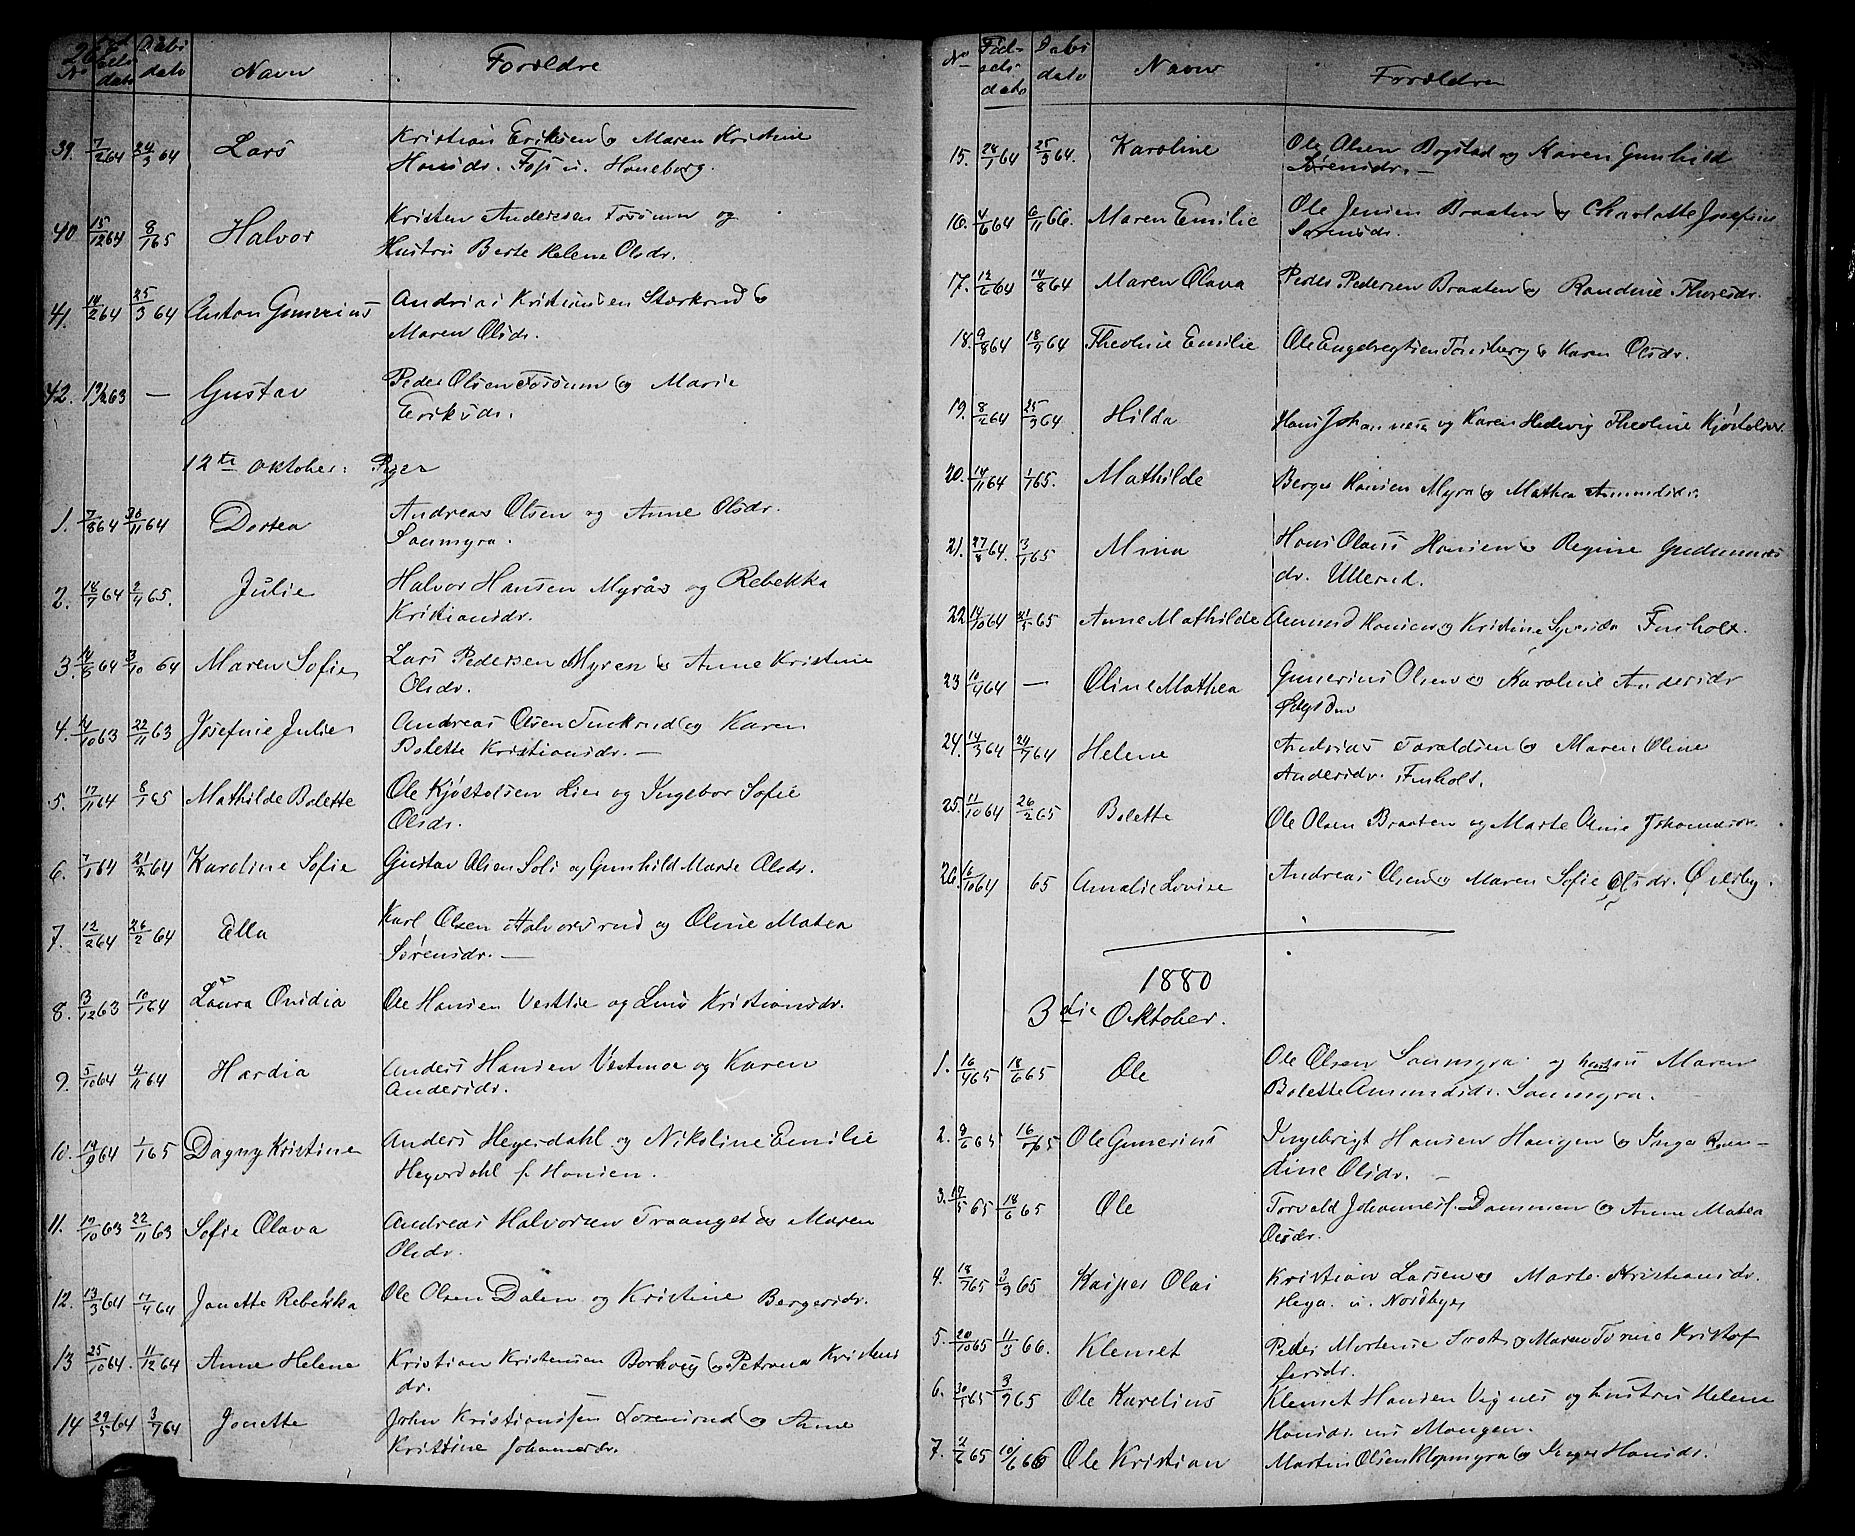 No Fødselsdato Dabsdato Navn Forældre
39. 7/2 64 24/3 64 Lars Kristian Eriksen og Maren Kristine
Hansdr. Foss u. Honeborg.
40 15/12 64 8/1 65 Halvor Kristen Andersen Fosum og
Hustru Berte Helene Olsdr.
41. 14/2 64 25/3 64 Anton Gunerius Andreas Kristiansen Stærkrud og
Maren Olsdr.
42. 63 — Gustav Peder Olsen Fossum og Marie
Eriksdr.
12te Oktober: Piger
1. 7/8 64 30/11 64 Dortea Andreas Olsen og Anne Olsdr.
Saumyra.
2. 18/7 64 65. Julie Halvor Hansen Myrås og Rebekka
Kristiansdr.
3. 64 3/10 64 Maren Sofie Lars Pedersen Myren og Anne Kristine
Olsdr.
4. 63 22/11 63 Josefine Julie Andreas Olsen og Karen
Bolette Kristiansdr. —
5. 17/11 64 8/1 65 Mathilde Bolette Ole Kjøstelsen Lier og Ingebor Sofie
Olsdr.
6. 7/1 64 21/2 64 Karoline Sofie Gustav Olsen Soli og Gunhild Marie Olsdr.
7. 12/2 64 26/2 64 Ella Karl Olsen Halvorsrud og Oline Matea
Sørensdr. —
8. 3/12 63 10/1 64 Laura Ovidia Ole Hansen Vestlie og Lina Kristiansdr.
9. 5/10 64 4/11 64 Hardia Anders Hansen Vestmoe og Karen
Andersdr.
10. 19/9 64 1/1 65 Dagny Kristine Anders Heyerdahl og Nikoline Emilie
Heyerdahl f. Hansen.
11. 19/10 63 22/11 63 Sofie Olava Andreas Halvorsen Traanget og Maren
Olsdr.
12. 13/3 64 17/4 64 Janette Rebekka Ole Olsen Dalen og Kristine Bergersdr.
13 25/10 64. 11/12 64 Anne Helene Kristian Kristensen Borkvig og Petrona Kristens
dr.
14 29/5 64 3/7 64 Jonette John Kristianssen Lorensrud og Anne
Kristine Johannesdr.
No Fødselsdato Dabsdato Navn Forældre
15. 24/1 64 25/3 64. Karoline Ole Olsen Bogstad og Karen Gunhild
Sørensdr. —
16. 4/6 64 6/11 66. Maren Emilie Ole Jensen Braaten og Charlotte Josefine
Sørensdr.
17. 12/6 64 14/8 64 Maren Olava Peder Pedersen Braaten og Randine Thoresdr.
18. 9/8 64 18/9 64 Theoline Emilie Ole Engebregtsen Tønsberg og Karen Olsdr.
19. 8/2 64 25/3 64 Hilda Hans Johannesen og Karen Hedevig Theoline Kjøstelsdr.
20. 14/11 64 1/1 65. Mathilde Berger Hansen Myra og Mathea Amundsdr.
21. 27/8 64. 65 Mina Hans Olaus Hansen og Regine Gudmunds
dr. Ullerud.
22 14/10 64 65 Anne Mathilde Amund Hansen og Kristine Syversdr Finholt.
23 10/4 64 — Oline Mathea Gunerius Olsen og Karoline Andersdr
24. 14/3 64 24/7 64 Helene Andreas Taraldsen og Maren Oline
Andersdr. Finholt.
25. 11/10 64 26/2 65 Bolette Ole Olsen Braaten og Marte Oline Johannesdr.
26. 16/10 64 65 Amalie Lovise Andreas Olsen og Maren Sofie Olsdr. Østby.
1880
3die Oktober.
1. 16/4 65 18/6 65 Ole Ole Olsen Saumyra og hustru Maren
Bolette Amundsdr. Saumyra. —
2. 9/6 65 16/7 65 Ole Gunerius Ingebrigt Hansen Haugen og Inga Ran-
dine Olsdr. —
3. 65 18/6 65 Ole Torvald Johannesf. Dammen og Anne Matea
Olsdr.
4. 18/7 65 3/9 65 Kasper Olai Kristian Larsen og Marte Kristiansdr.
Hega u. Nordbye
5. 20/10 65 11/3 66. Klemet Peder Mortense og Maren Kristof
fersdr.
6. 65 3/9 65 Ole Karelius Klemet Hansen Vignes og hustru Helene
Hansdr. Mangen.
7. 2/6 65 10/6 66 Ole Kristian Martin Olsen Klopmyra og Inger Hansdr.